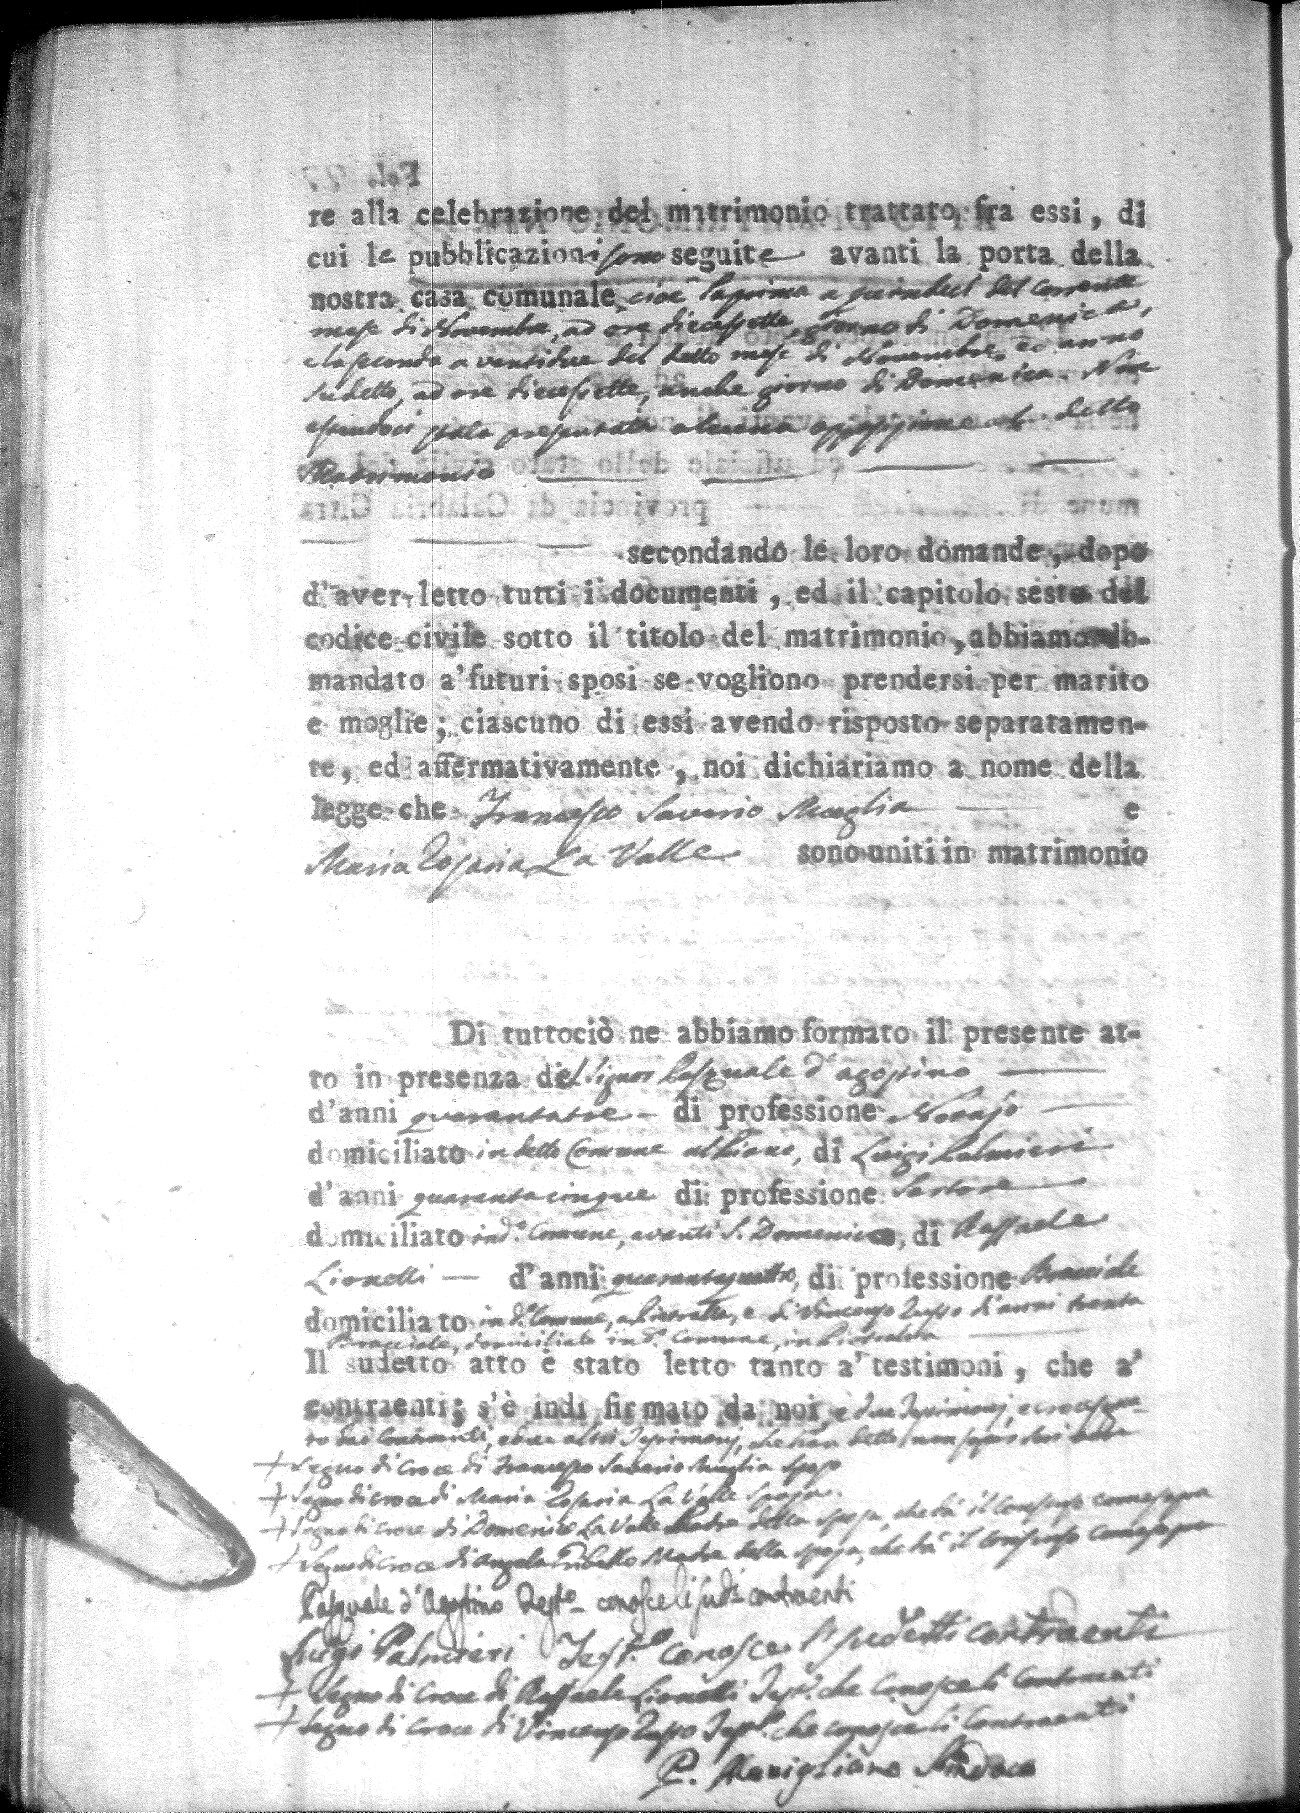 re alla celebrazione del matrimonio trattato fra essi, di
cui le pubblicazioni sono seguite avanti la porta della
nostra casa comunale cioè la prima a quindeci del corrente
mese di Novembre, ad ore diecessette, giorno di Domenica,
e la seconda a ventidue del detto mese di Novembre, ed anno
sudetto, ad ore diecessette, anche giorno di Domenica. Non
essendoci stata presentata alcuna opposizione al detto
Matrimonio
secondando le loro domande, dopo
d'aver letto tutti i documenti, ed il capitolo sesto del
codice civile sotto il titolo del matrimonio, abbiamo do-
mandato a' futuri sposi se vogliono prendersi per marito
e moglie; ciascuno di essi avendo risposto separatamen-
te, ed affermativamente, noi dichiariamo a nome della
legge che Francesco Saverio Muglia e
Maria Rosaria La Valle sono uniti in matrimonio
Di tuttociò ne abbiamo formato il presente at-
to in presenza del Signor Pasquale d'Agostino
d'anni quarantatre di professione Notajo
domiciliato in detto Comune al Piano, di Luigi Palmieri
d'anni quarantacinque di professione Sartore
domiciliato in d.º Comune, avanti S. Domenico, di Raffaele
Lionetti d'anni quarantaquattro, di professione Bracciale
domiciliato in d.º Comune, a , e di Vincenzo Russo d'anni trenta
Bracciale, domiciliato in d.º Comune, in
Il sudetto atto è stato letto tanto a' testimoni, che a'
contraenti; s'è indi firmato da noi, e due Testimonj, e crocesegna-
to dai Contraenti, e due altri Testimonj, che han detto non saper scrivere
+ Segno di Croce di Francesco Saverio Muglia sposo
+ Segno di Croce di Maria Rosaria La Valle Sposa
+ Segno di Croce di Domenico La Valle Padre della sposa, che dà il Consenso come sopra
+ Segno di Croce di Angela Madre della sposa, che dà il Consenso come sopra
Pasquale d'Agostino Test.º conosce li sud.ti contraenti
Luigi Palmieri Test.º conosce li sudetti contraenti
+ Segno di Croce di Raffaele Lionetti Test.º che conosce li Contraenti
+ Segno di Croce di Vincenzo Russo Test.º che conosce li Contraenti
P. Marigliano Sindaco